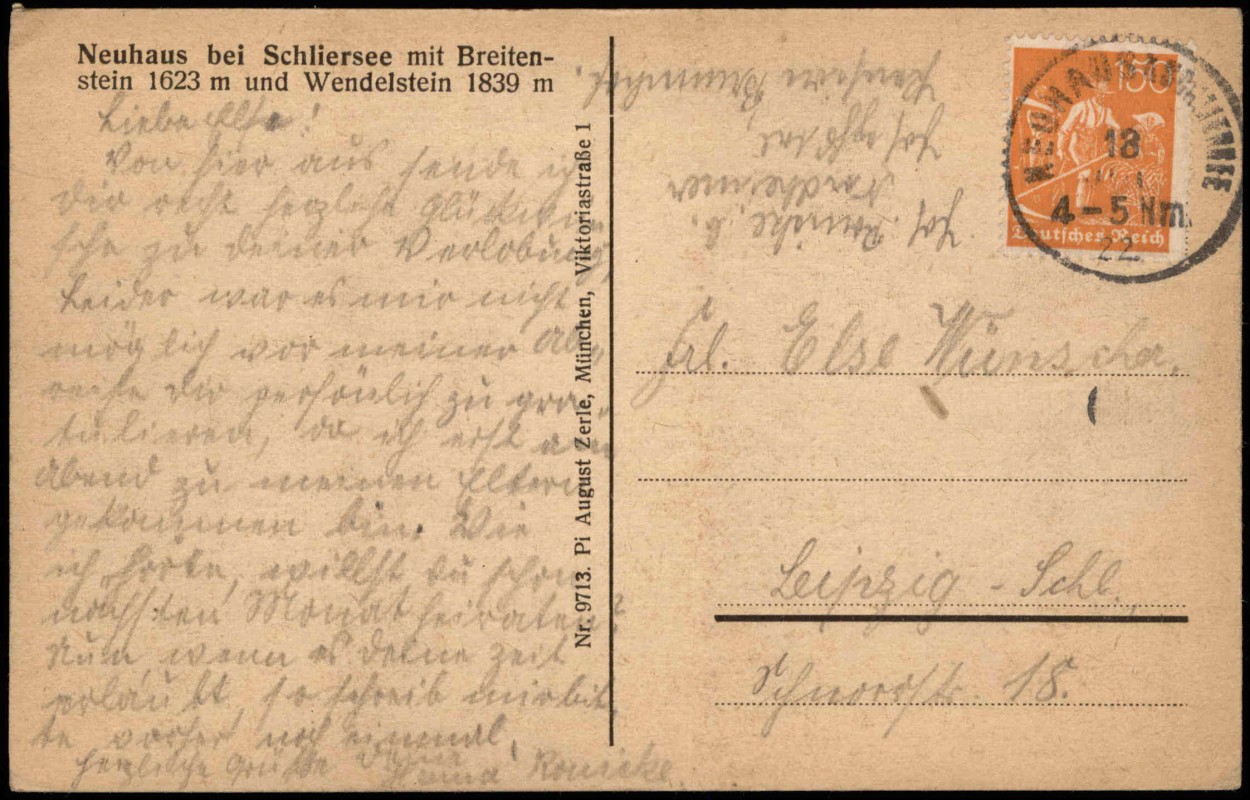 Neuhaus bei Schliersee mit Breiten-
stein 1623 m und Wendelstein 1839 m
Liebe Else!
Von hier aus sende ich
Dir recht herzliche Glückwün
sche zu deiner Verlobung,
Leider war es mir nicht
möglich vor meiner Ab-
reise dir persönlich zu gra-
tulieren, da ich erst am
Abend zu meinen Eltern
gekommen bin. Wie
ich hörte, willst du schon
nächsten Monat heiraten?
Nun, wenn es deine Zeit
erlaubt, so schreib mir bit
te vorher noch einmal,
herzliche Grüße Deine
Ronicke
Nr. 9713. Pi August Zerle, München, Viktoriastraße 1
150
Deutsches Reich
18
4-5 Nm
22
Frl. Else Wünscher,
Leipzig - Schl.,
Schnorrstr. 18.